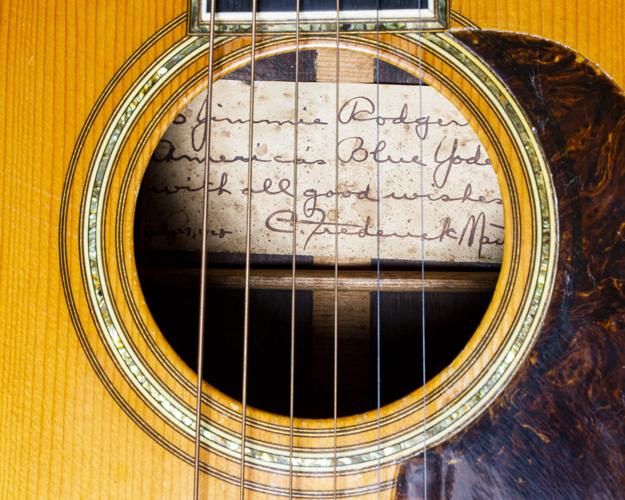 o Jimmie Rodgers
America's Blue Yode
with all good wishes
C. Frederick Mar